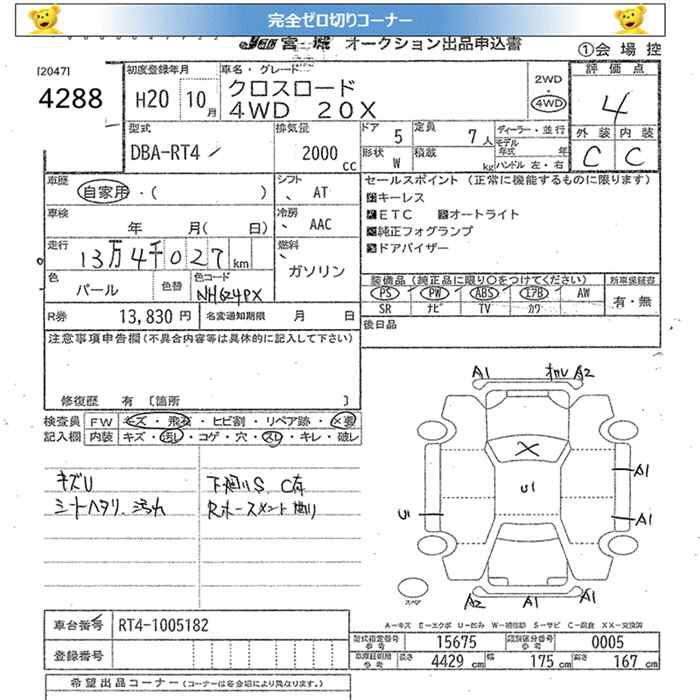 完全ゼロ切りコーナー
宮城 オークション出品申込書
①会場控
[2047]
4288
初度登録年月
H20 10月
車名・グレード
クロスロード
4WD 20X
2WD
4WD
評価点
4
外装 内装
C C
型式
DBA-RT4
排気量
2000 cc
ドア 5
定員 7人
ディーラー・並行
形状 W
積載 kg
モデル年式 年
ハンドル 左・右
車歴
自家用・( )
シフト AT
車検
年 月( 日)
冷房 AAC
走行
13万4千027km
燃料
ガソリン
色
パール
色替
色コード
NH624PX
R券 13,830円
名変通知期限 月 日
セールスポイント (正常に機能するものに限ります)
キーレス
ETC オートライト
純正フォグランプ
ドアバイザー
装備品(純正品に限り○をつけてください)
PS PW ABS エアB AW
SR ナビ TV カワ
所車保証書
有・無
後日品
注意事項申告欄(不具合内容等は具体的に記入して下さい)
修復歴 有 〔箇所 〕
検査員記入欄
FW キズ・飛石・ヒビ割・リペア跡・X要
内装 キズ・汚れ・コゲ・穴・スレ・キレ・破レ
キズU
シートヘタリ、汚れ
下廻りS、C有
A1 A2
X
U1
A1
A1
A2 A1 A1
スペア
A-キズ E-エクボ U-凹み W-補修跡 S-サビ C-腐食 XX-交換済
車台番号 RT4-1005182
登録番号
型式指定番号 参考 15675
類別区分番号 参考 0005
参考 長さ 4429cm 幅 175cm 高さ 167cm
希望出品コーナー (コーナーは各会場により異なります。)